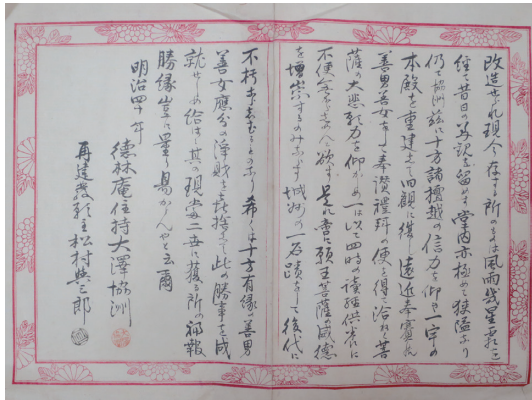 改造せられ現今存する所のものは風雨幾星霜を
経て昔日の荘観を留めす堂内亦極めて狭隘なり
仍て協洲茲に十方諸檀越の信力を仰き一宇の
本殿を重建して旧観に復し遠近奉賽の
善男善女をして奉讃礼拝の便を得て洽ねく菩
薩の大悲願力を仰かしめ一は以て四時の読経供養に
不便なからしめんと欲す是れ啻に願王菩薩の威徳
を増崇するのみならす城州の一名蹟をして後代に
不朽ならしむるものなり希くは十方有縁の善男
善女応分の浄財を喜捨して此の勝事を成
就せしめ給はは其の現当二世に獲る所の福報
勝縁豈に量り易からんやと云爾
明治四十年
徳林庵住持大澤協洲
再建発願主松村與三郎